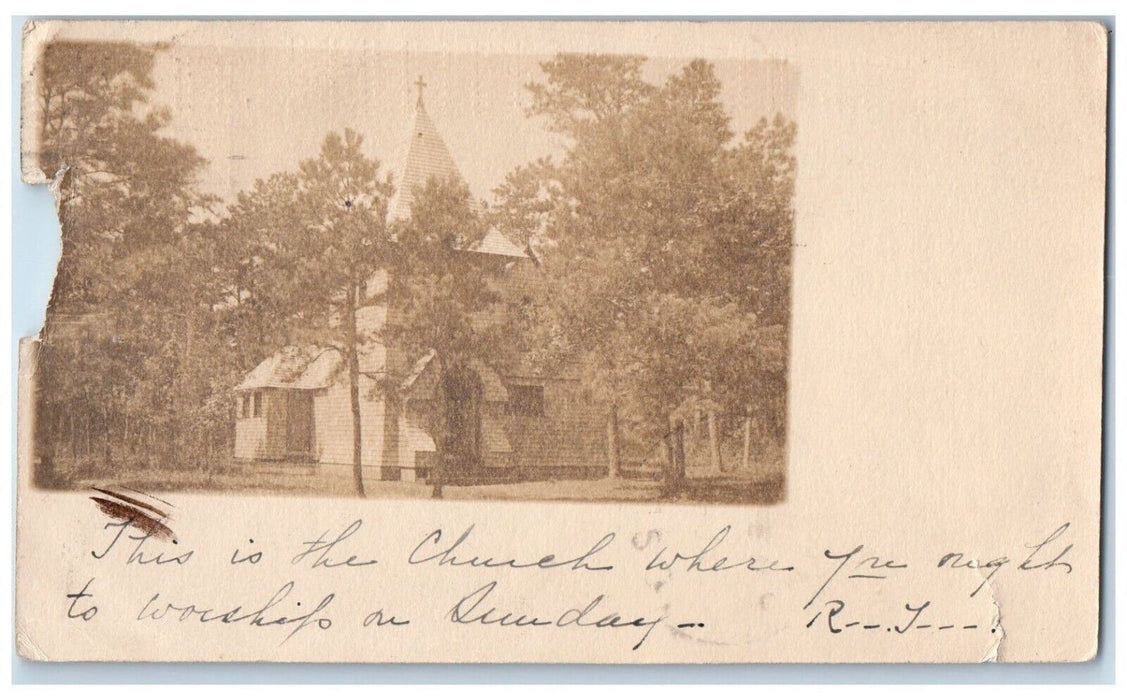 This is the Church where you ought
to worship on Sunday -- R--.J---.